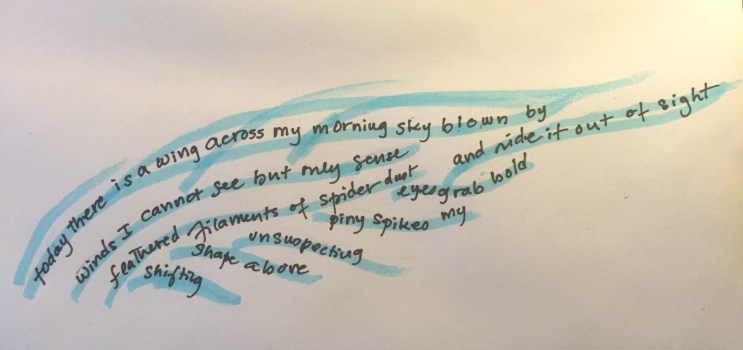 today there is a wing across my morning sky blown by
winds I cannot see but only sense
feathered filaments of spider dust
shifting
shape above
unsuspecting
piny spikes my
eyes grab hold
and ride it out of sight